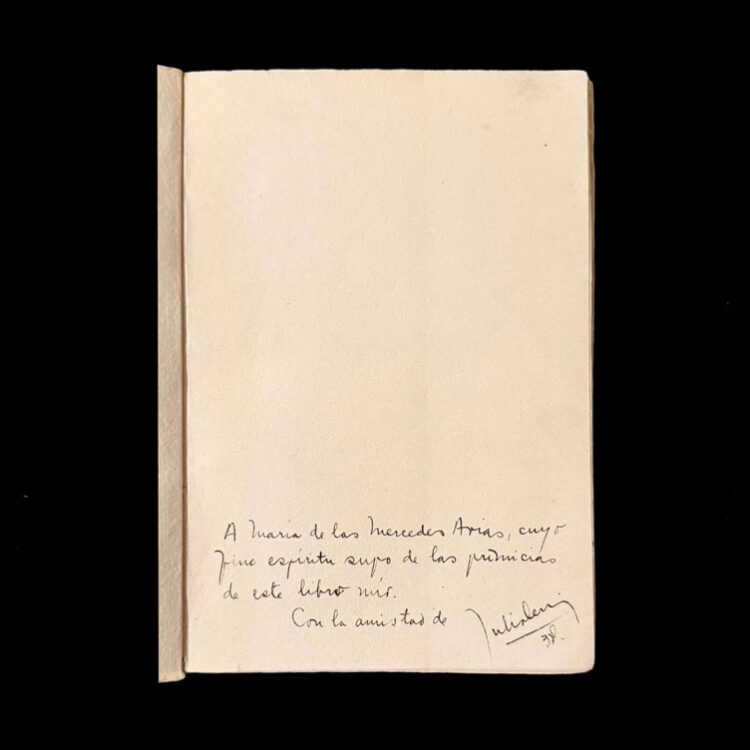 A María de las Mercedes Arias, cuyo
fino espíritu supo de las primicias
de este libro mío.
Con la amistad de
38.